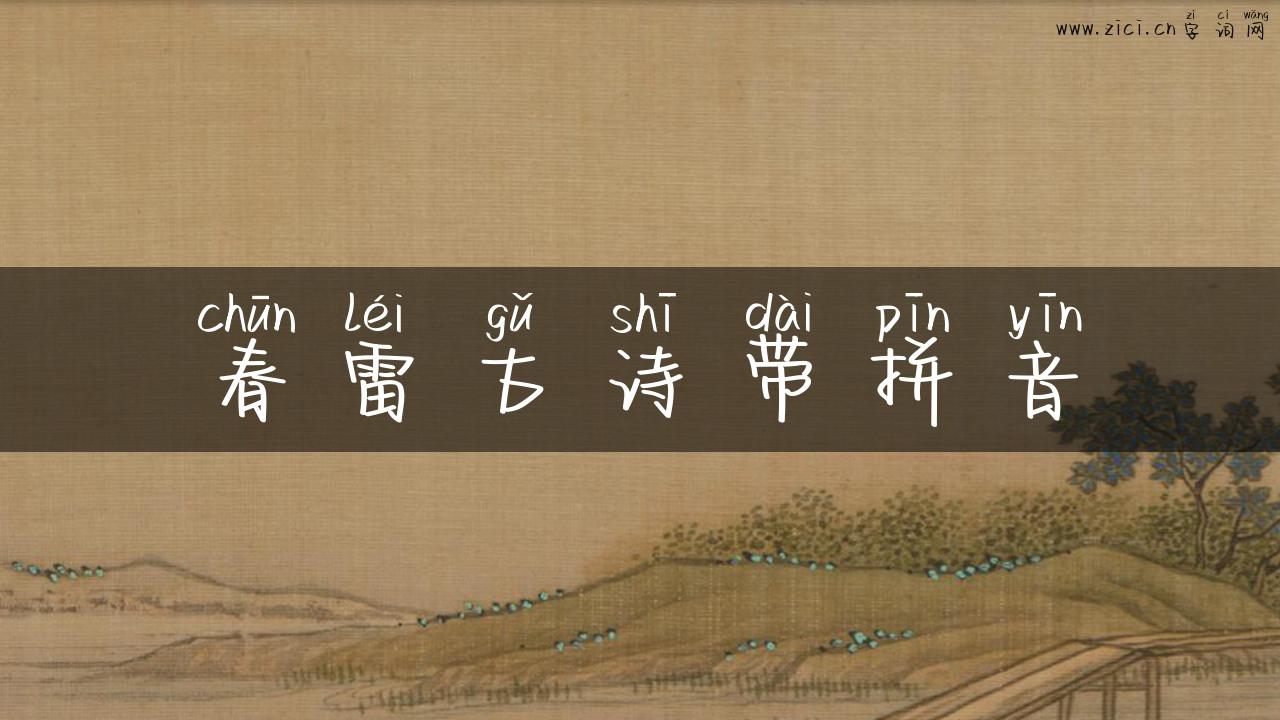 zì cí wǎng
www.zici.cn字词网
chūn léi gǔ shī dài pīn yīn
春雷古诗带拼音